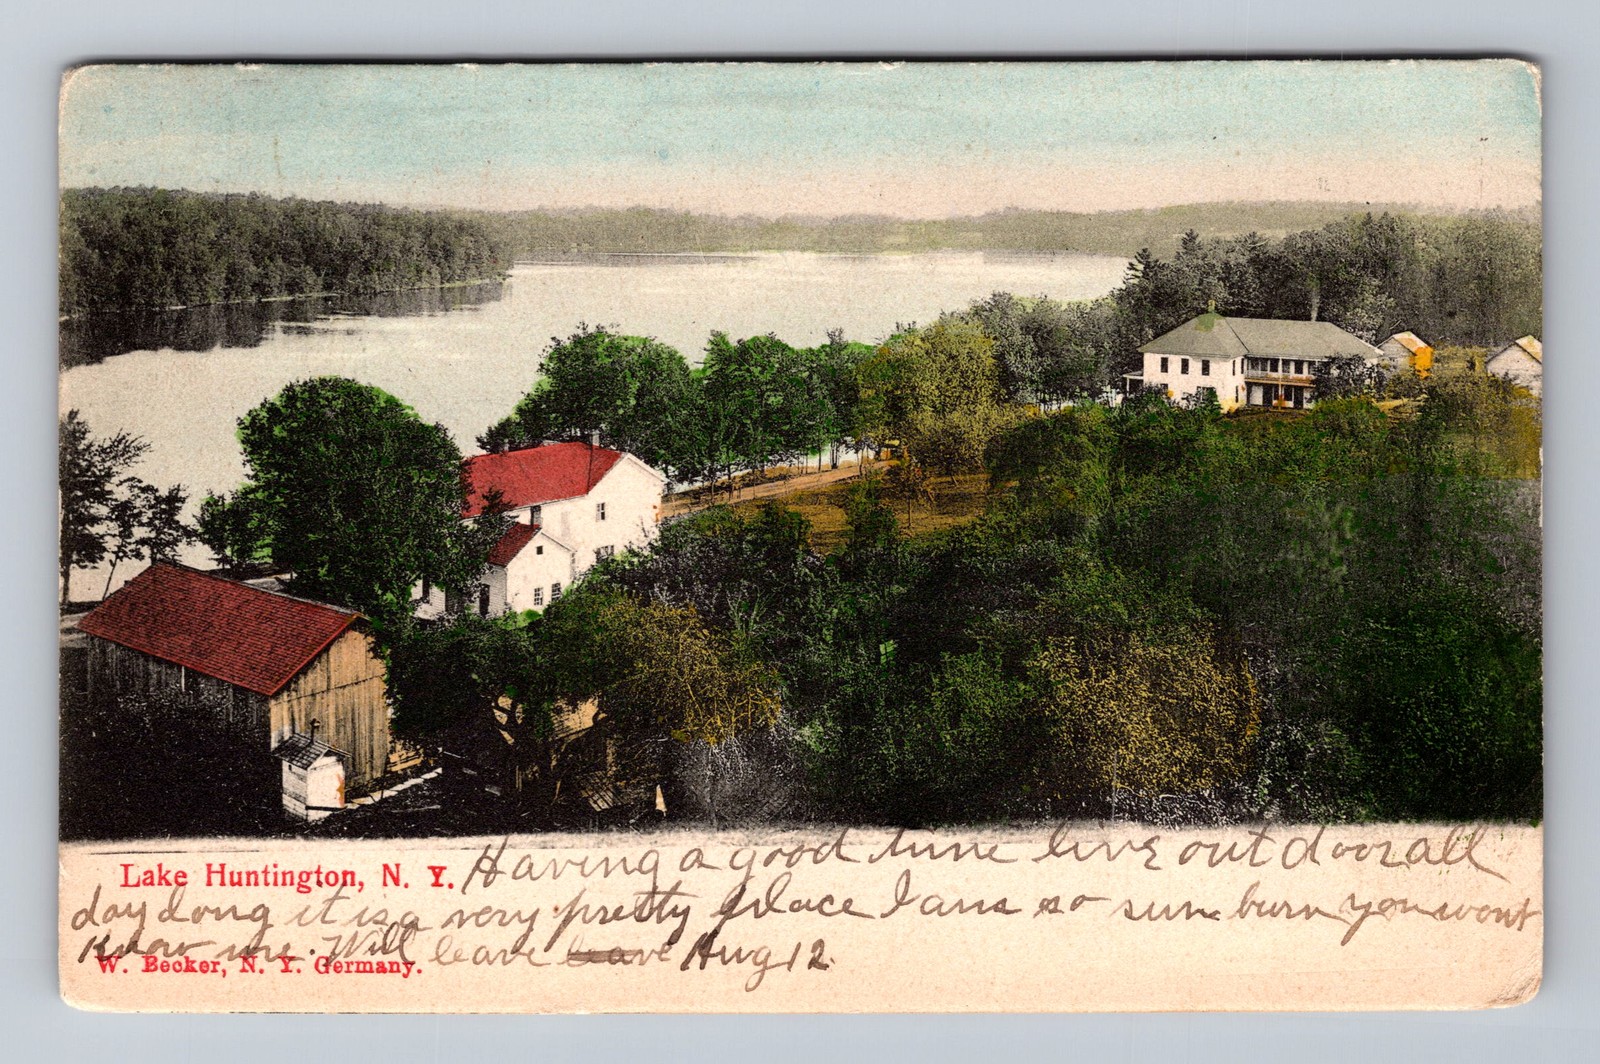 Lake Huntington, N. Y. Having a good time live out doors all
day long it is a very pretty place I am so sun burn you wont
Know me. Will leave leave Aug 12.
W. Becker, N. Y. Germany.